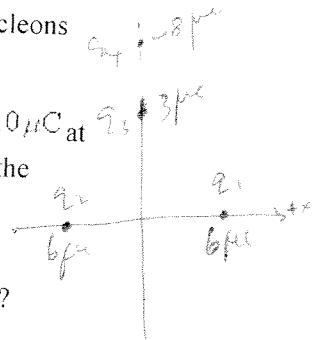 cleons
q₄ -8μc
.0 μC at q₃ 3μc
the
q₂ q₁ +x
6μc 6μc
?